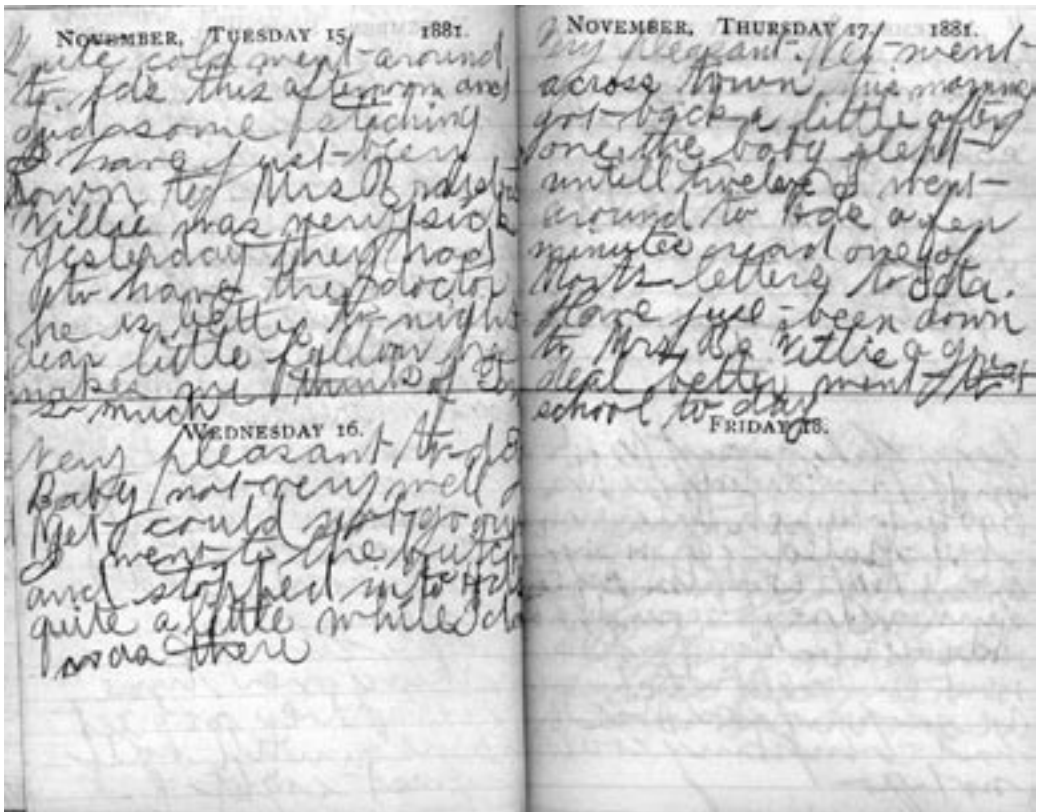 NOVEMBER, TUESDAY 15, 1881.
Quite cold went around
to Ade this afternoon and
did some stiching
I have just been
down to Mrs
Willie was very sick
yesterday they had
to have the doctor
he is better to night
dear little fellow he
makes me think of
so much
WEDNESDAY 16.
Very pleasant to
Baby not very well
Net could not go out
I went to the
and stopped into
quite a little while
was there
NOVEMBER, THURSDAY 17, 1881.
Very pleasant. Net went
across town this morning
got back a little after
one the baby slept
untill twelve I went
around to Ade a few
minutes read one of
Morts letters to
Have just been down
to Mrs Willie a great
deal better went to
school to day
FRIDAY 18.